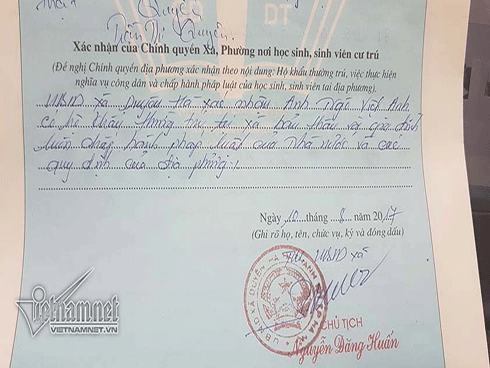 Quyên
Trần Thị Quyên.
ĐT
Xác nhận của Chính quyền Xã, Phường nơi học sinh, sinh viên cư trú
(Đề nghị Chính quyền địa phương xác nhận theo nội dung: Hộ khẩu thường trú, việc thực hiện
nghĩa vụ công dân và chấp hành pháp luật của học sinh, sinh viên tại địa phương).
UBND xã Duyên Hà xác nhận Anh Ngô Việt Anh
có hộ khẩu thường trú tại xã bản thân và gia đình
luôn chấp hành pháp luật của nhà nước và các
quy định của địa phương.
Ngày 10 tháng 8 năm 2017
(Ghi rõ họ, tên, chức vụ, ký và đóng dấu)
TM UBND xã
CHỦ TỊCH
Nguyễn Đăng Huấn
Vietnamnet
VIETNAMNET.VN